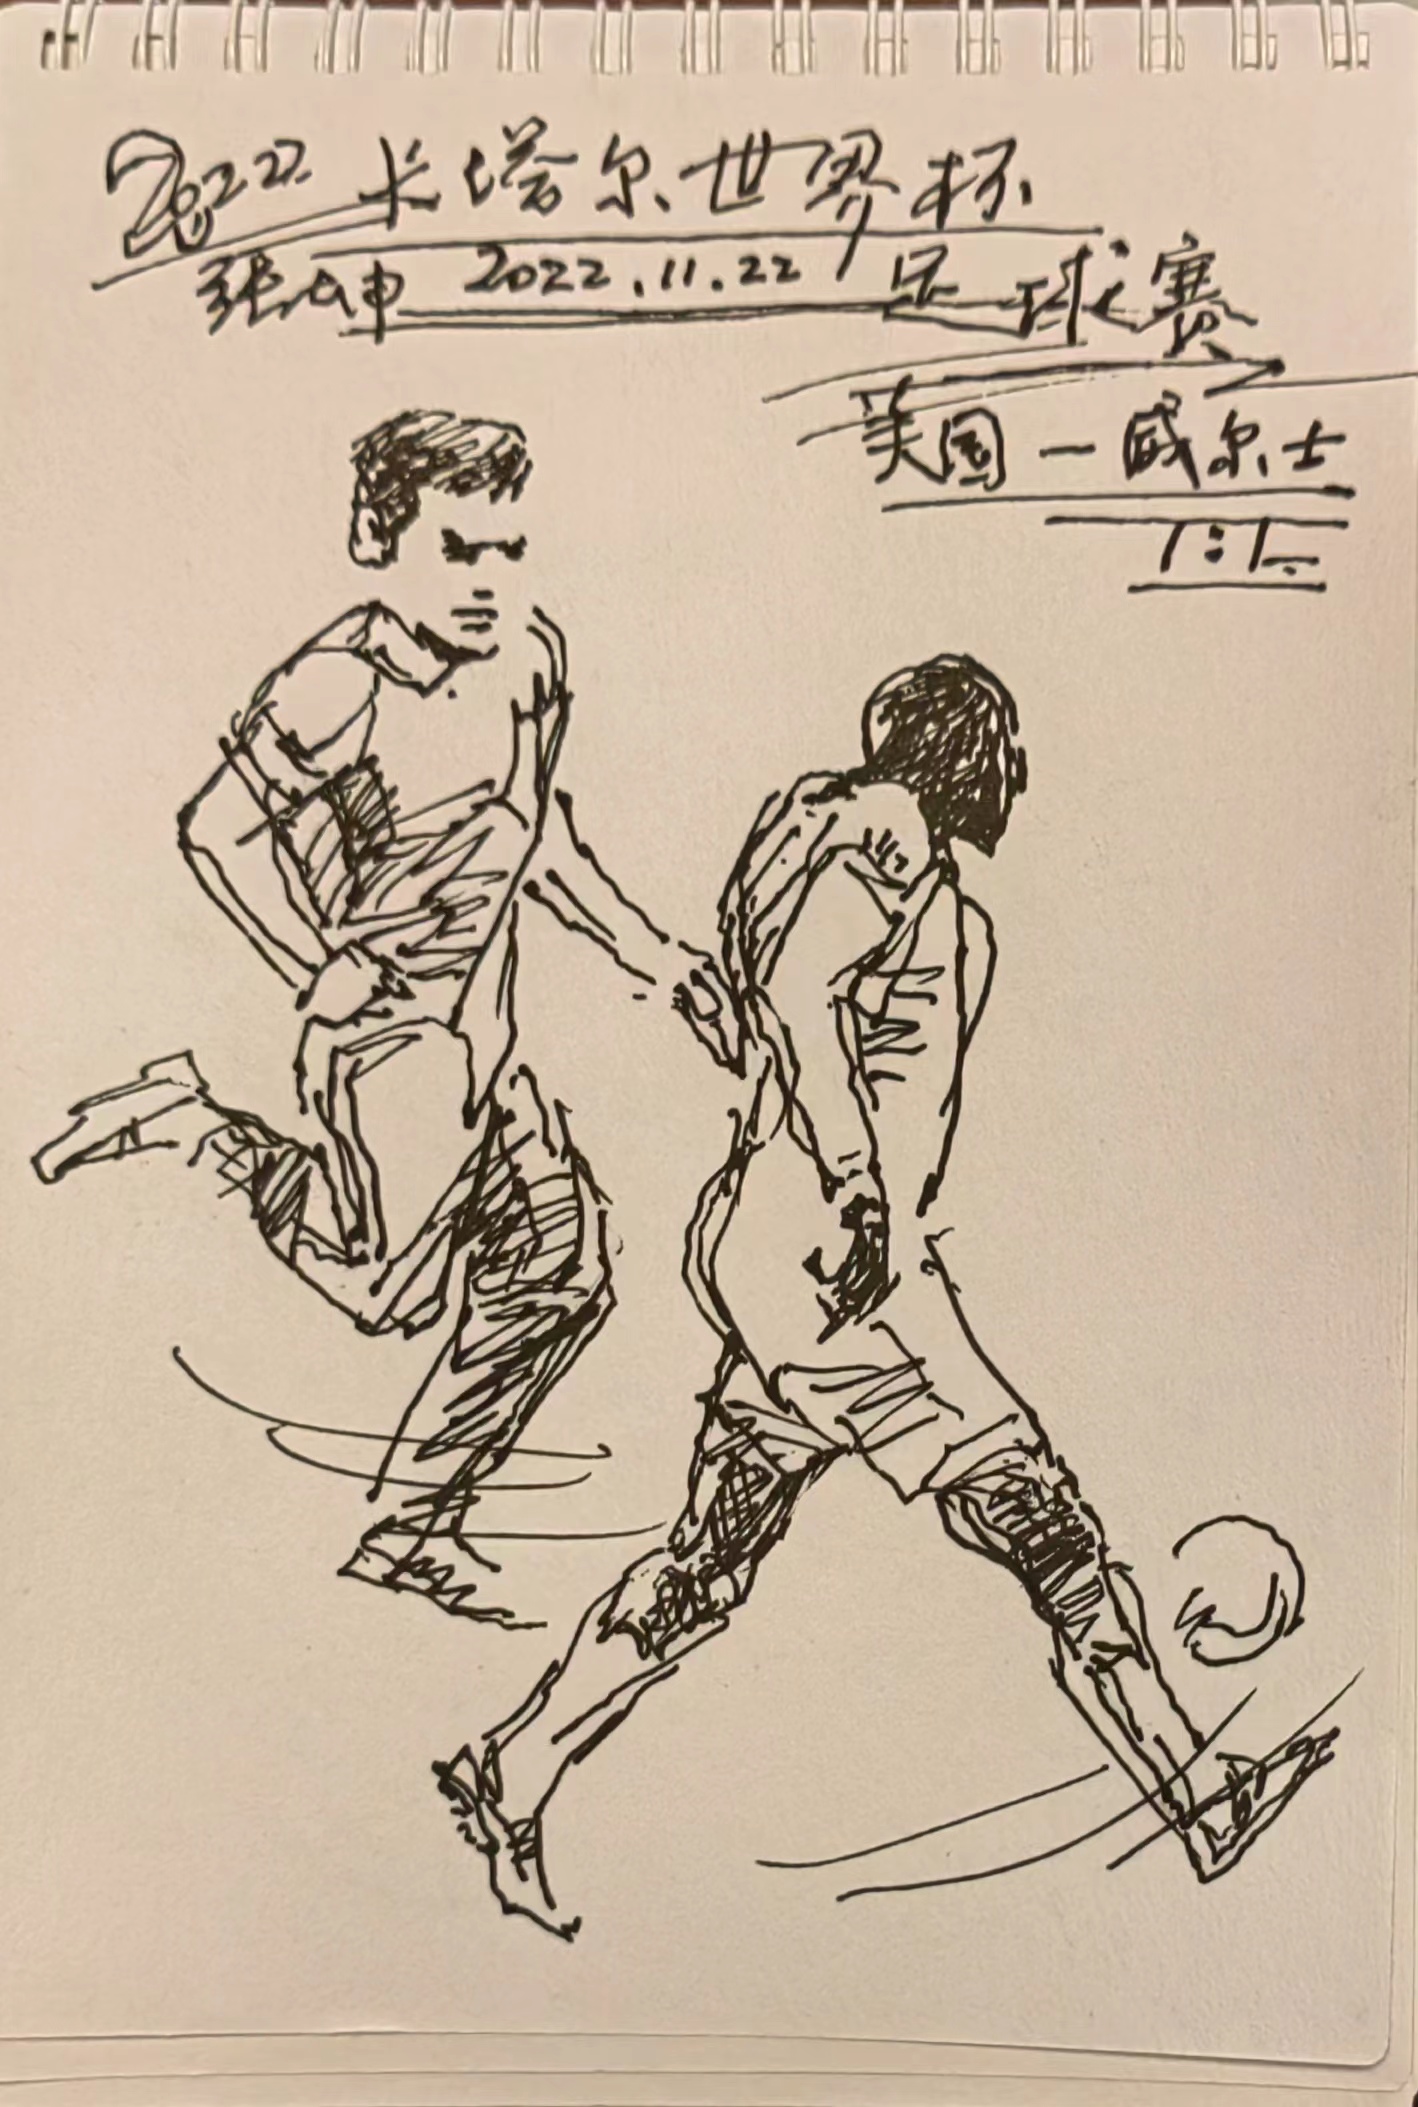 2022 卡塔尔世界杯
张坤 2022.11.22 足球赛
美国一威尔士
1:1